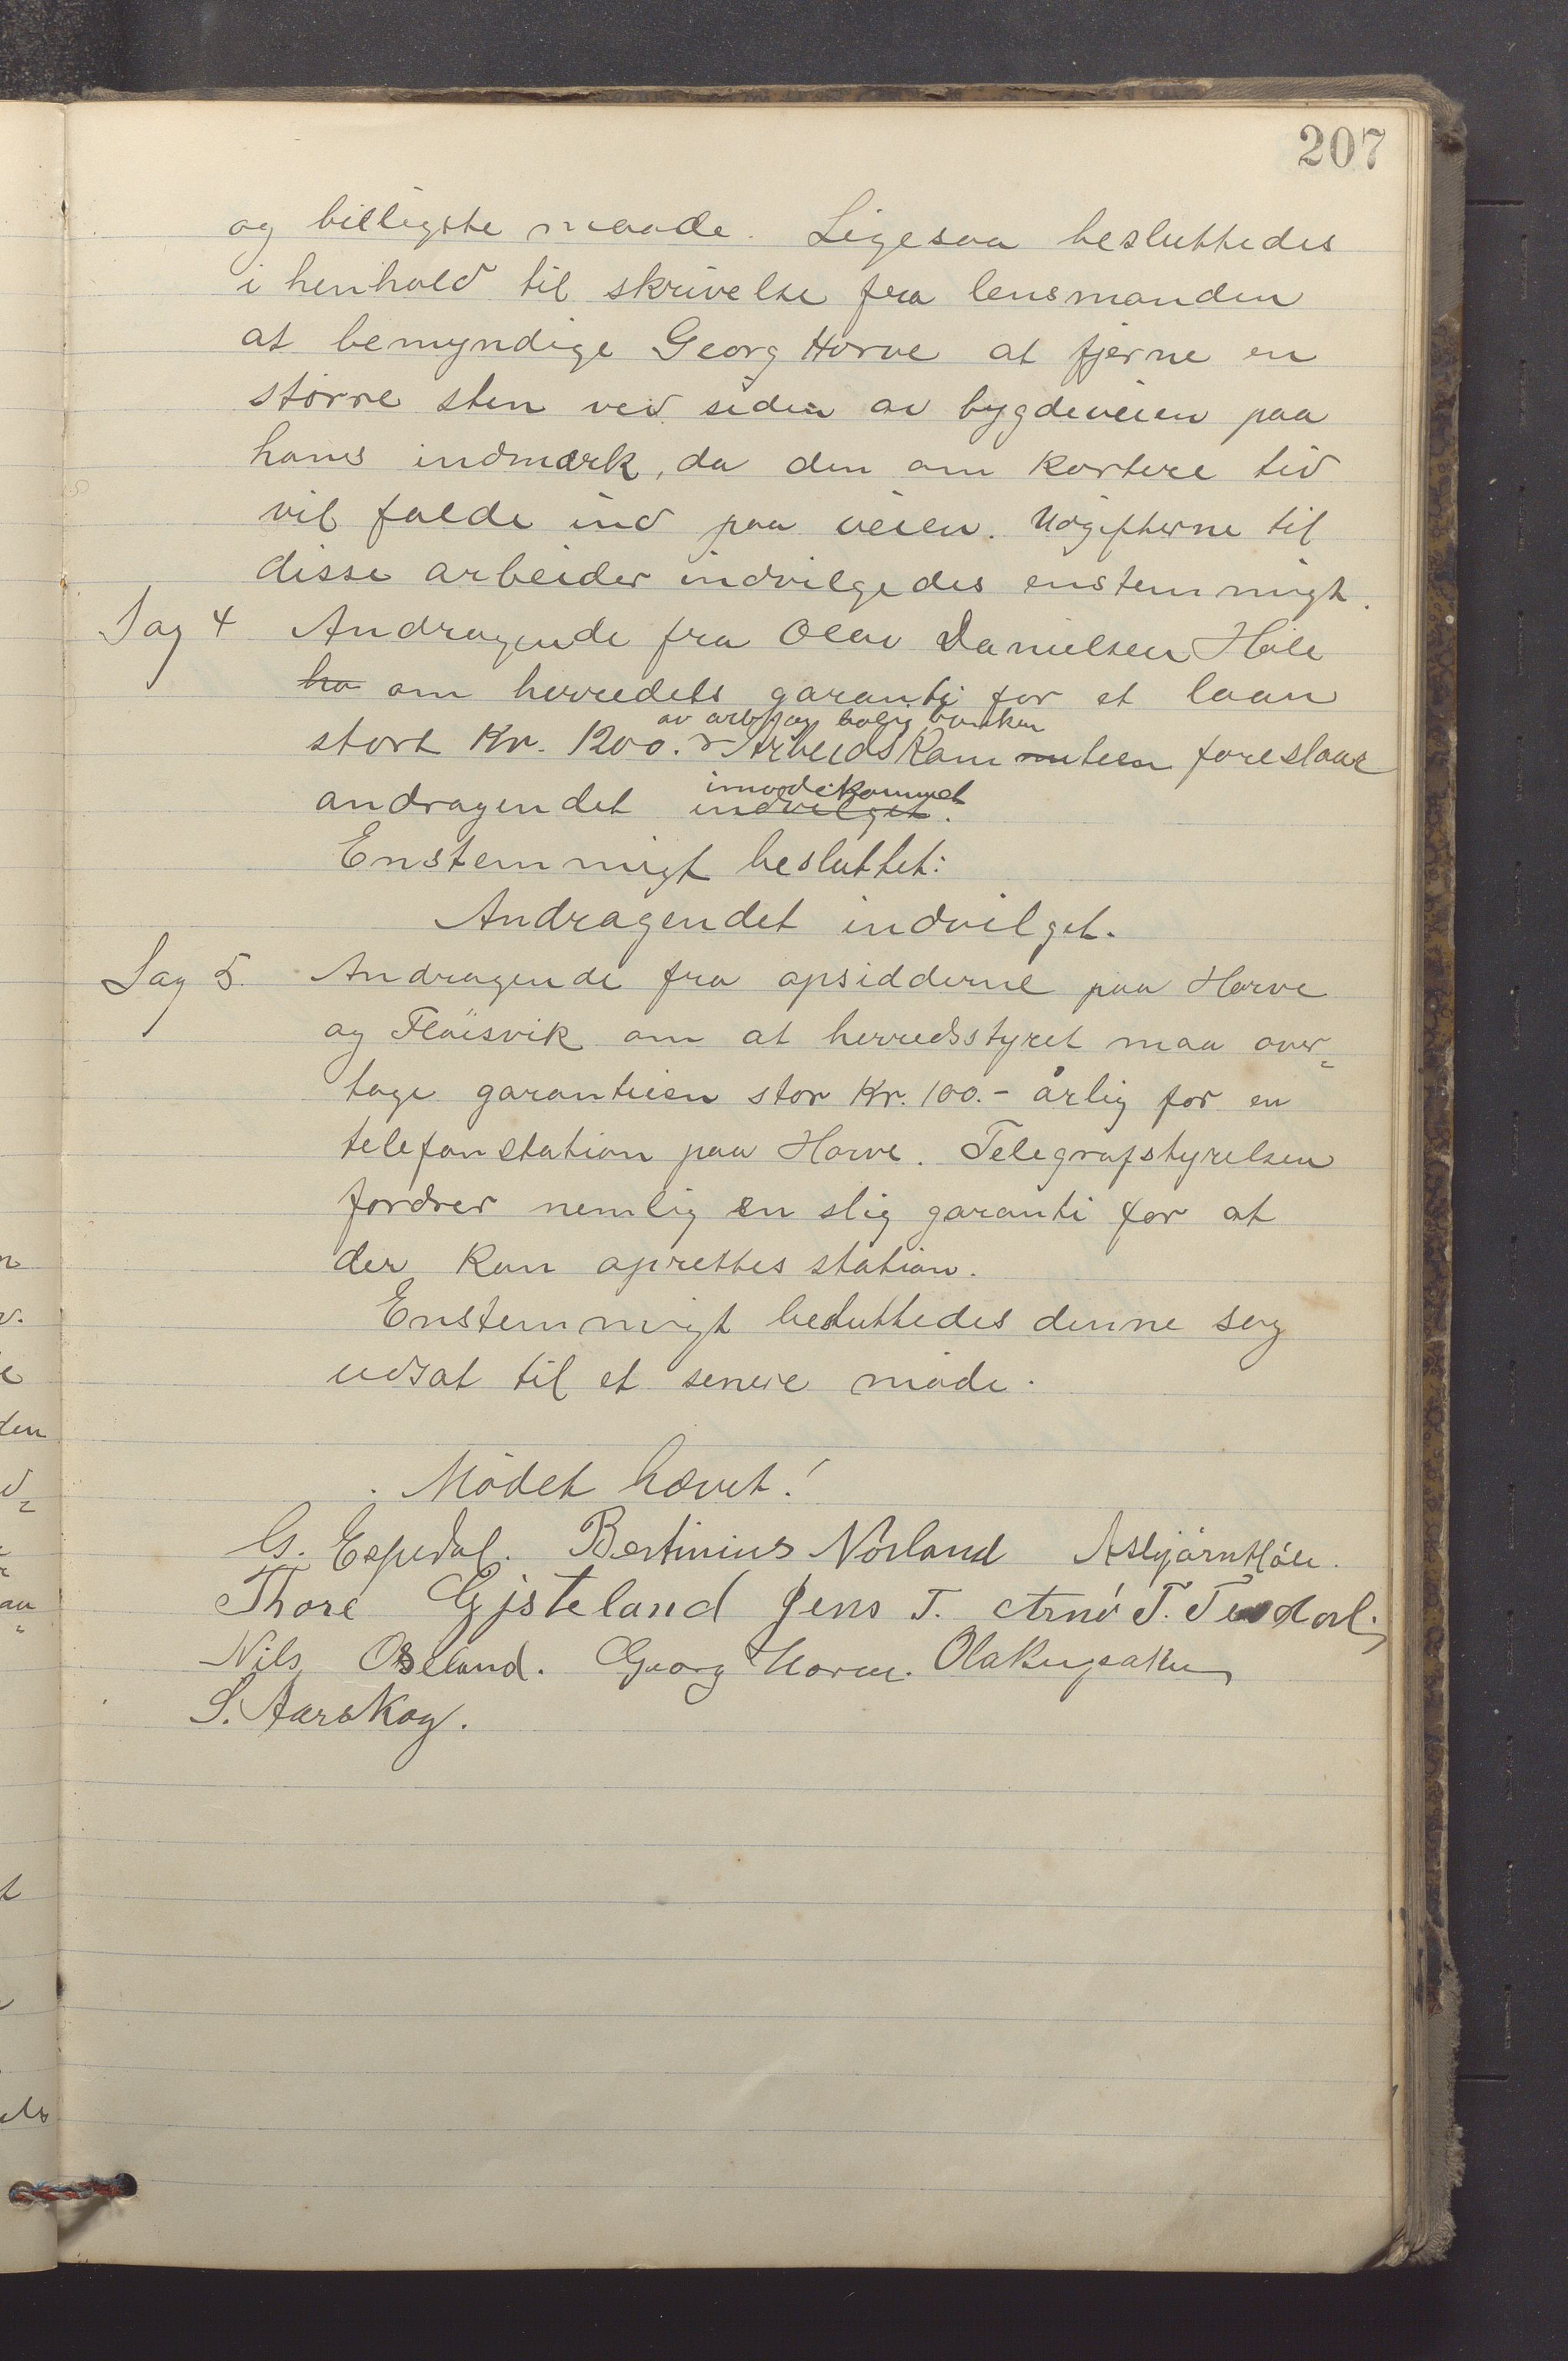 207
og billigste maade. Ligesaa besluttedes
i henhold til skrivelse fra lensmanden
at bemyndige Georg Horve at fjerne en
större sten ved siden av bygdeveien paa
hans indmark, da den om kortere tid
vil falde ind paa veien. Udgifterne til
disse arbeider indvilgedes enstemmigt.
Sag 4 Andragende fra Olav Danielsen Höle
ha om herredets garanti for et laan
av arb. og bolig banken
stort Kr. 1200. Arbeidskommiteen foreslaar
imödekommet
andragendet indvilget.
Enstemmigt besluttet:
Andragendet indvilget.
Sag 5. Andragende fra opsidderne paa Horve
og Flöisvik om at herredsstyret maa over-
tage garantien stor Kr. 100.- årlig for en
telefonstation paa Horve. Telegrafstyrelsen
fordrer nemlig en slig garanti for at
der kan oprettes station.
Enstemmigt besluttedes denne sag
udsat til et senere möde.
Mödet hævet!
G. Espedal. Bertinius Nörland Asbjörn Höle.
Thore Gjsteland Jens T. Arnö T.
Nils Oseland. Georg Horve.
S. Aarskog.